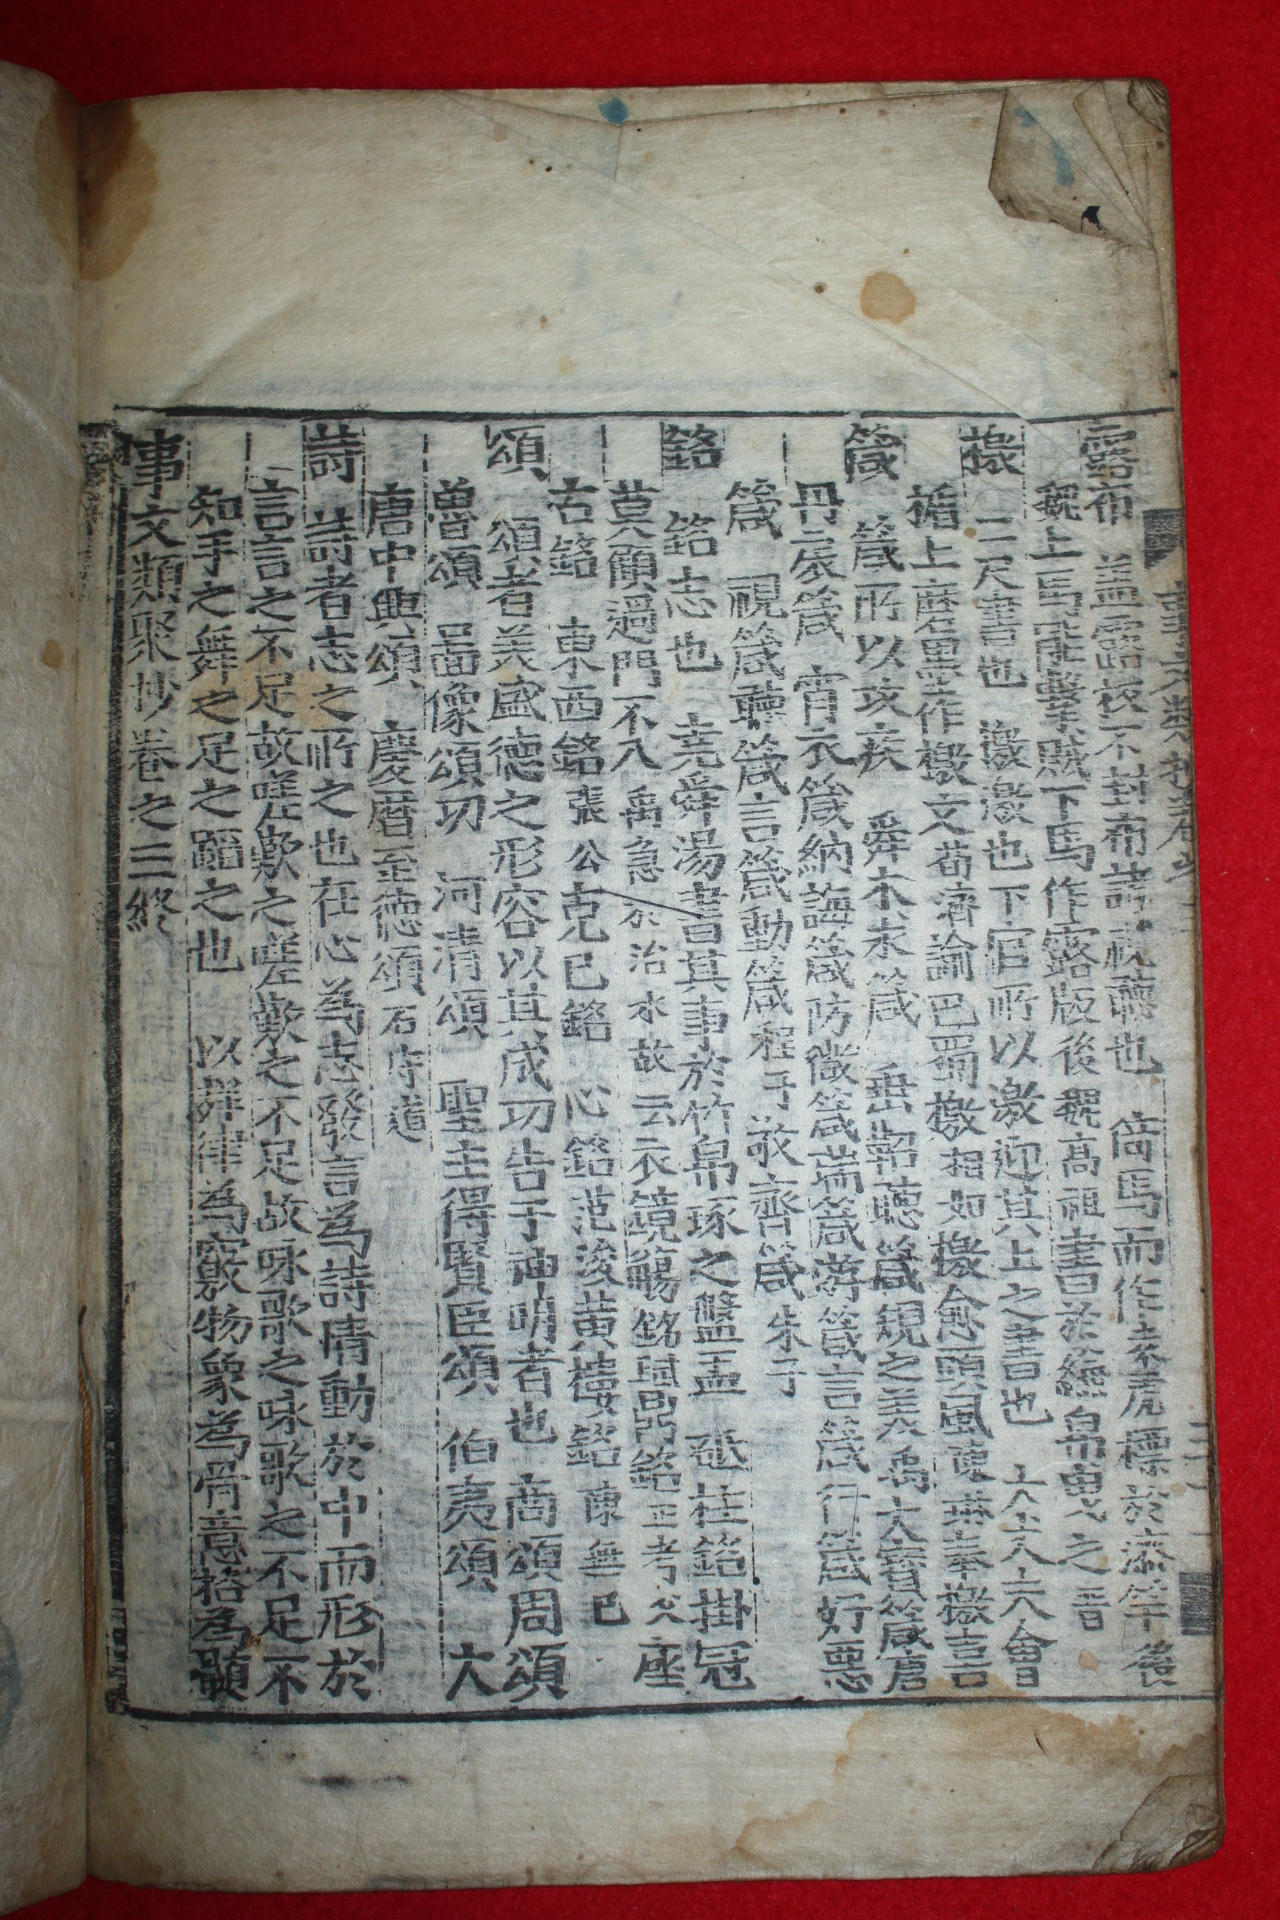 事文類抄卷之三
露布 盖露板不封布諸視聽也 倚馬而作 袁虎 標於漆竿 後
魏 上馬能擊賊下馬作露版 後魏高祖 書於縑帛曳之 晋
檄 二尺書也 檄激也下官所以激迎其上之書也 大人六會
楯上磨墨作檄文 荀濟 論巴蜀檄 相如 檄愈頭風 陳琳 奉檄言
箴 箴所以攻疾 舜木求箴 垂韜聽箴 規之美 禹 大寶箴 唐
丹扆箴 宵衣箴納誨箴防微箴端箴 箴言箴行箴好惡
箴 視箴聽箴言箴動箴 程子 敬齊箴 朱子
銘 銘志也 堯舜湯書其事於竹帛琢之盤盂 砥柱銘掛冠
莫顧過門不入 禹急於治水故云 衣鏡觴銘 鼎銘 正考父 座
古銘 東西銘 張公 克己銘 心銘 范浚 黄樓銘 陳無已
頌 頌者美盛德之形容以其成功告于神明者也 商頌周頌
魯頌 啚像頌功 河清頌 聖主得賢臣頌 伯夷頌 大
唐中興頌 慶曆至德頌 石守道
詩 詩者志之所之也在心爲志發言爲詩情動於中而形於
言言之不足故嗟歎之嗟歎之不足故咏歌之咏歌之不足不
知手之舞之足之蹈之也 以聲律爲竅物象爲骨意格爲髓
事文類聚抄卷之三終